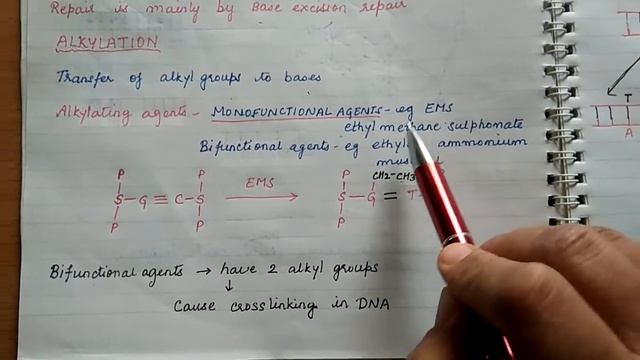 Repair is mainly by Base excision repair
ALKYLATION
Transfer of alkyl groups to bases
Alkylating agents - MONOFUNCTIONAL AGENTS - eg EMS
ethyl methane sulphonate
Bifunctional agents - eg ammonium
P P EMS P CH2-CH3
S-G≡C-S → S-G = T
P P P
Bifunctional agents → have 2 alkyl groups
↓
Cause crosslinking in DNA
A